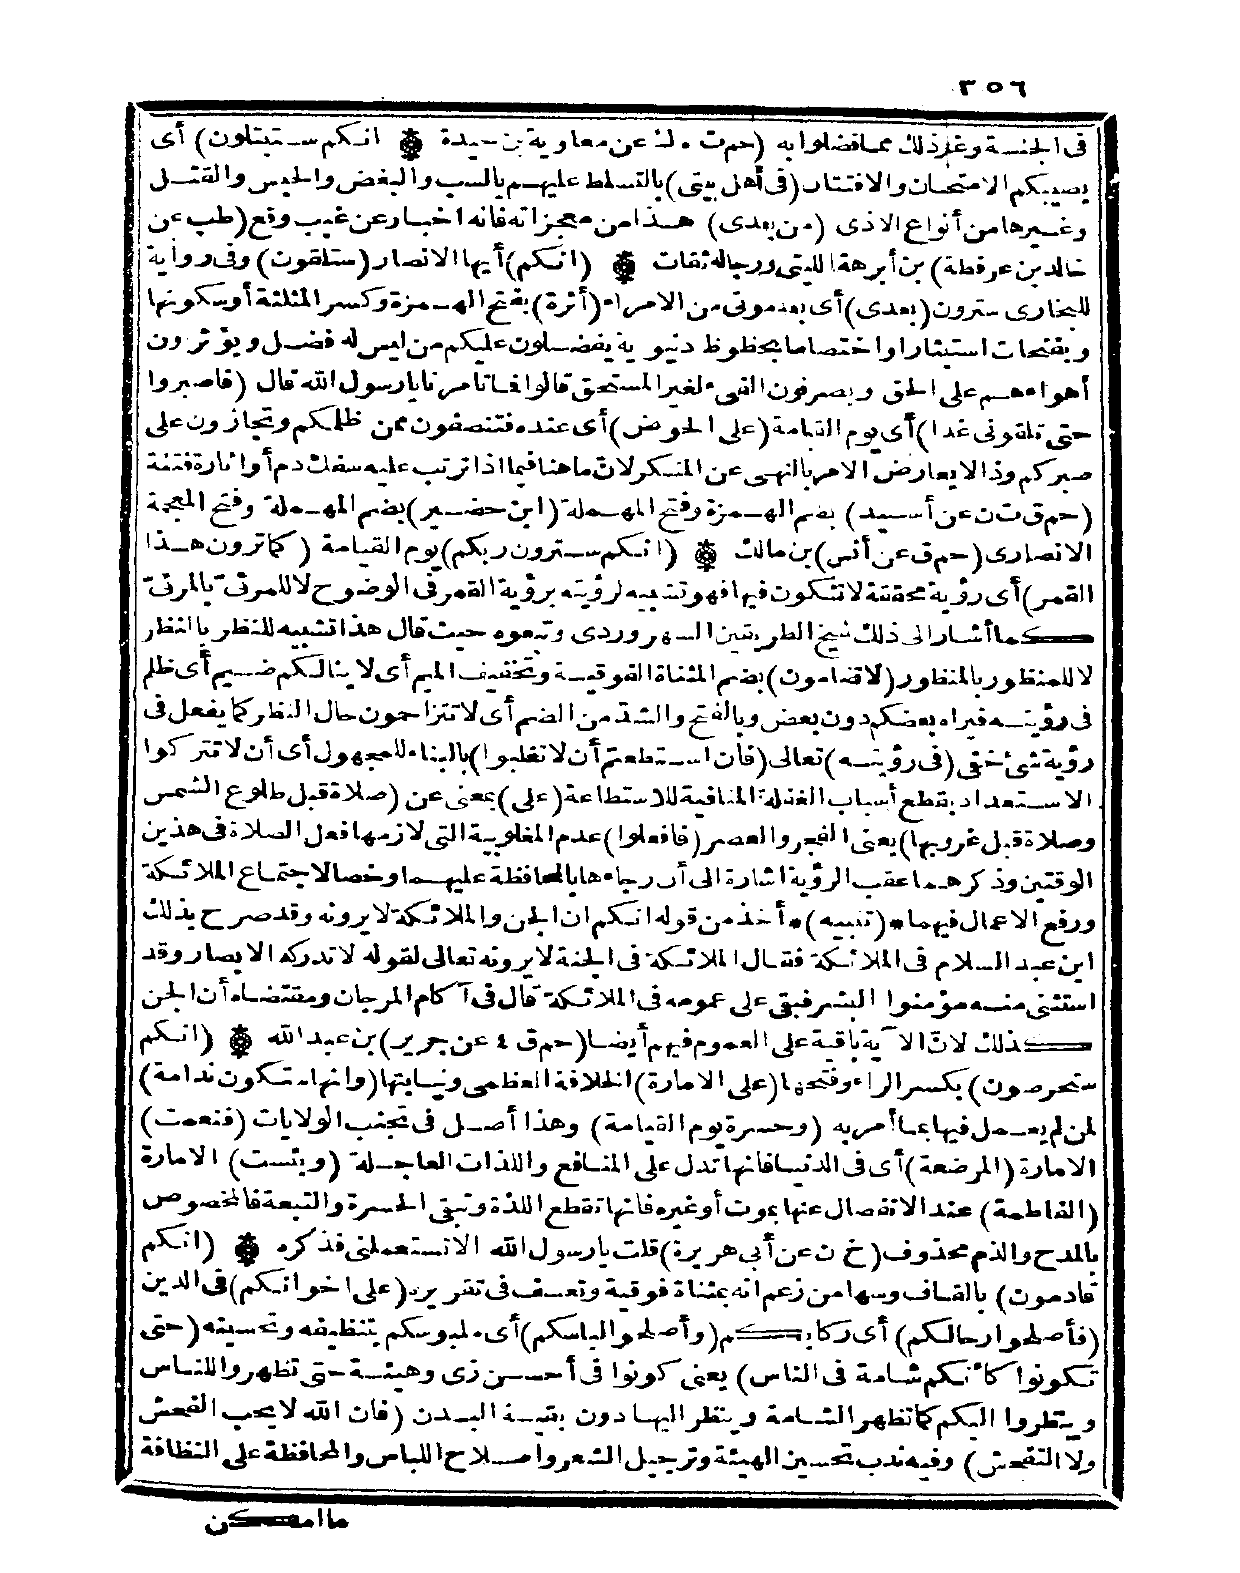 ٣٥٦
فى الجنسة وغير ذلك مما فضلوا به (حم ت ه ك عن معاوية بن حيدة ۞ انكم ستبتلون) أى
يصيبكم الامتحان والافتتان (فى أهل بيتى) بالتسلط عليهم بالسب والبغض والحبس والقتل
وغيرها من أنواع الاذى (من بعدى) هذا من معجزاته فانه اخبار عن غيب وقع (طب عن
خالد بن عرفطة) بن أبرهة الليثى ورجاله ثقات ۞ (انكم) أيها الانصار (ستلقون) وفى رواية
للبخارى سترون (بعدى) أى بعد موتى من الامراء (أثرة) بفتح الهمزة وكسر المثلثة أو سكونها
وبفتحات استيثارا واختصاصا بحظوظ دنيوية يفضلون عليكم من ليس له فضل ويؤثرون
أهواءهم على الحق ويصرفون الفىء لغير المستحق قالوا فما تأمرنا يا رسول الله قال (فاصبروا
حتى تلقونى غدا) أى يوم القيامة (على الحوض) أى عنده فتنصفون ممن ظلمكم وتجازون على
صبركم وذا لا يعارض الامر بالنهى عن المنكر لان ما هنا فيما اذا ترتب عليه سفك دم أو اثارة فتنة
(حم ق ت ن عن أسيد) بضم الهمزة وفتح المهملة (ابن حضير) بضم المهملة وفتح المعجمة
الانصارى (حم ق عن أنس) بن مالك ۞ (انكم سترون ربكم) يوم القيامة (كما ترون هذا
القمر) أى رؤية محققة لا تشكون فيها فهو تشبيه لرؤيته برؤية القمر فى الوضوح لا للمرئى بالمرئى
كما أشار الى ذلك شيخ الطريقين السهروردى وتبعوه حيث قال هذا تشبيه للنظر بالنظر
لا للمنظور بالمنظور (لا تضامون) بضم المثناة الفوقية وتخفيف الميم أى لا ينالكم ضيم أى ظلم
فى رؤيته فيراه بعضكم دون بعض وبالفتح والشد من الضم أى لا تتزاحمون حال النظر كما يفعل فى
رؤية شئ خفى (فى رؤيته) تعالى (فان استطعتم أن لا تغلبوا) بالبناء للمجهول أى أن لا تتركوا
الاستعداد بقطع أسباب الغفلة المنافية للاستطاعة (على) بمعنى عن (صلاة قبل طلوع الشمس
وصلاة قبل غروبها) يعنى الفجر والعصر (فافعلوا) عدم المغلوبية التى لازمها فعل الصلاة فى هذين
الوقتين وذكرهما عقب الرؤية اشارة الى أن رجاءها بالمحافظة عليهما وخصا لاجتماع الملائكة
ورفع الاعمال فيهما * (تنبيه) * أخذ من قوله انكم ان الجن والملائكة لا يرونه وقد صرح بذلك
ابن عبد السلام فى الملائكة فقال الملائكة فى الجنة لا يرونه تعالى لقوله لا تدركه الابصار وقد
استثنى منه مؤمنوا البشر فبقى على عمومه فى الملائكة قال فى آكام المرجان ومقتضاه أن الجن
كذلك لان الآية باقية على العموم فيهم أيضا (حم ق ٤ عن جرير) بن عبد الله ۞ (انكم
ستحرصون) بكسر الراء وفتحها (على الامارة) الخلافة العظمى ونيابتها (وانها ستكون ندامة)
لمن لم يعمل فيها بما أمر به (وحسرة يوم القيامة) وهذا أصل فى تجنب الولايات (فنعمت)
الامارة (المرضعة) أى فى الدنيا فانها تدل على المنافع واللذات العاجلة (وبئست) الامارة
(الفاطمة) عند الانفصال عنها بموت أو غيره فانها تقطع اللذة وتبقى الحسرة والتبعة فالمخصوص
بالمدح والذم محذوف (خ ن عن أبى هريرة) قلت يا رسول الله الا تستعملنى فذكره ۞ (انكم
قادمون) بالقاف وسها من زعم انه بمثناة فوقية وتعسف فى تقريره (على اخوانكم) فى الدين
(فأصلحوا رحالكم) أى ركابكم (وأصلحوا لباسكم) أى ملبوسكم بتنظيفه وتحسينه (حتى
تكونوا كأنكم شامة فى الناس) يعنى كونوا فى أحسن زى وهيئة حتى تظهروا للناس
وينظروا اليكم كما تظهر الشامة وينظر اليها دون بقية البدن (فان الله لا يحب الفحش
ولا التفحش) وفيه ندب تحسين الهيئة وترجيل الشعر واصلاح اللباس والمحافظة على النظافة
ما امكن